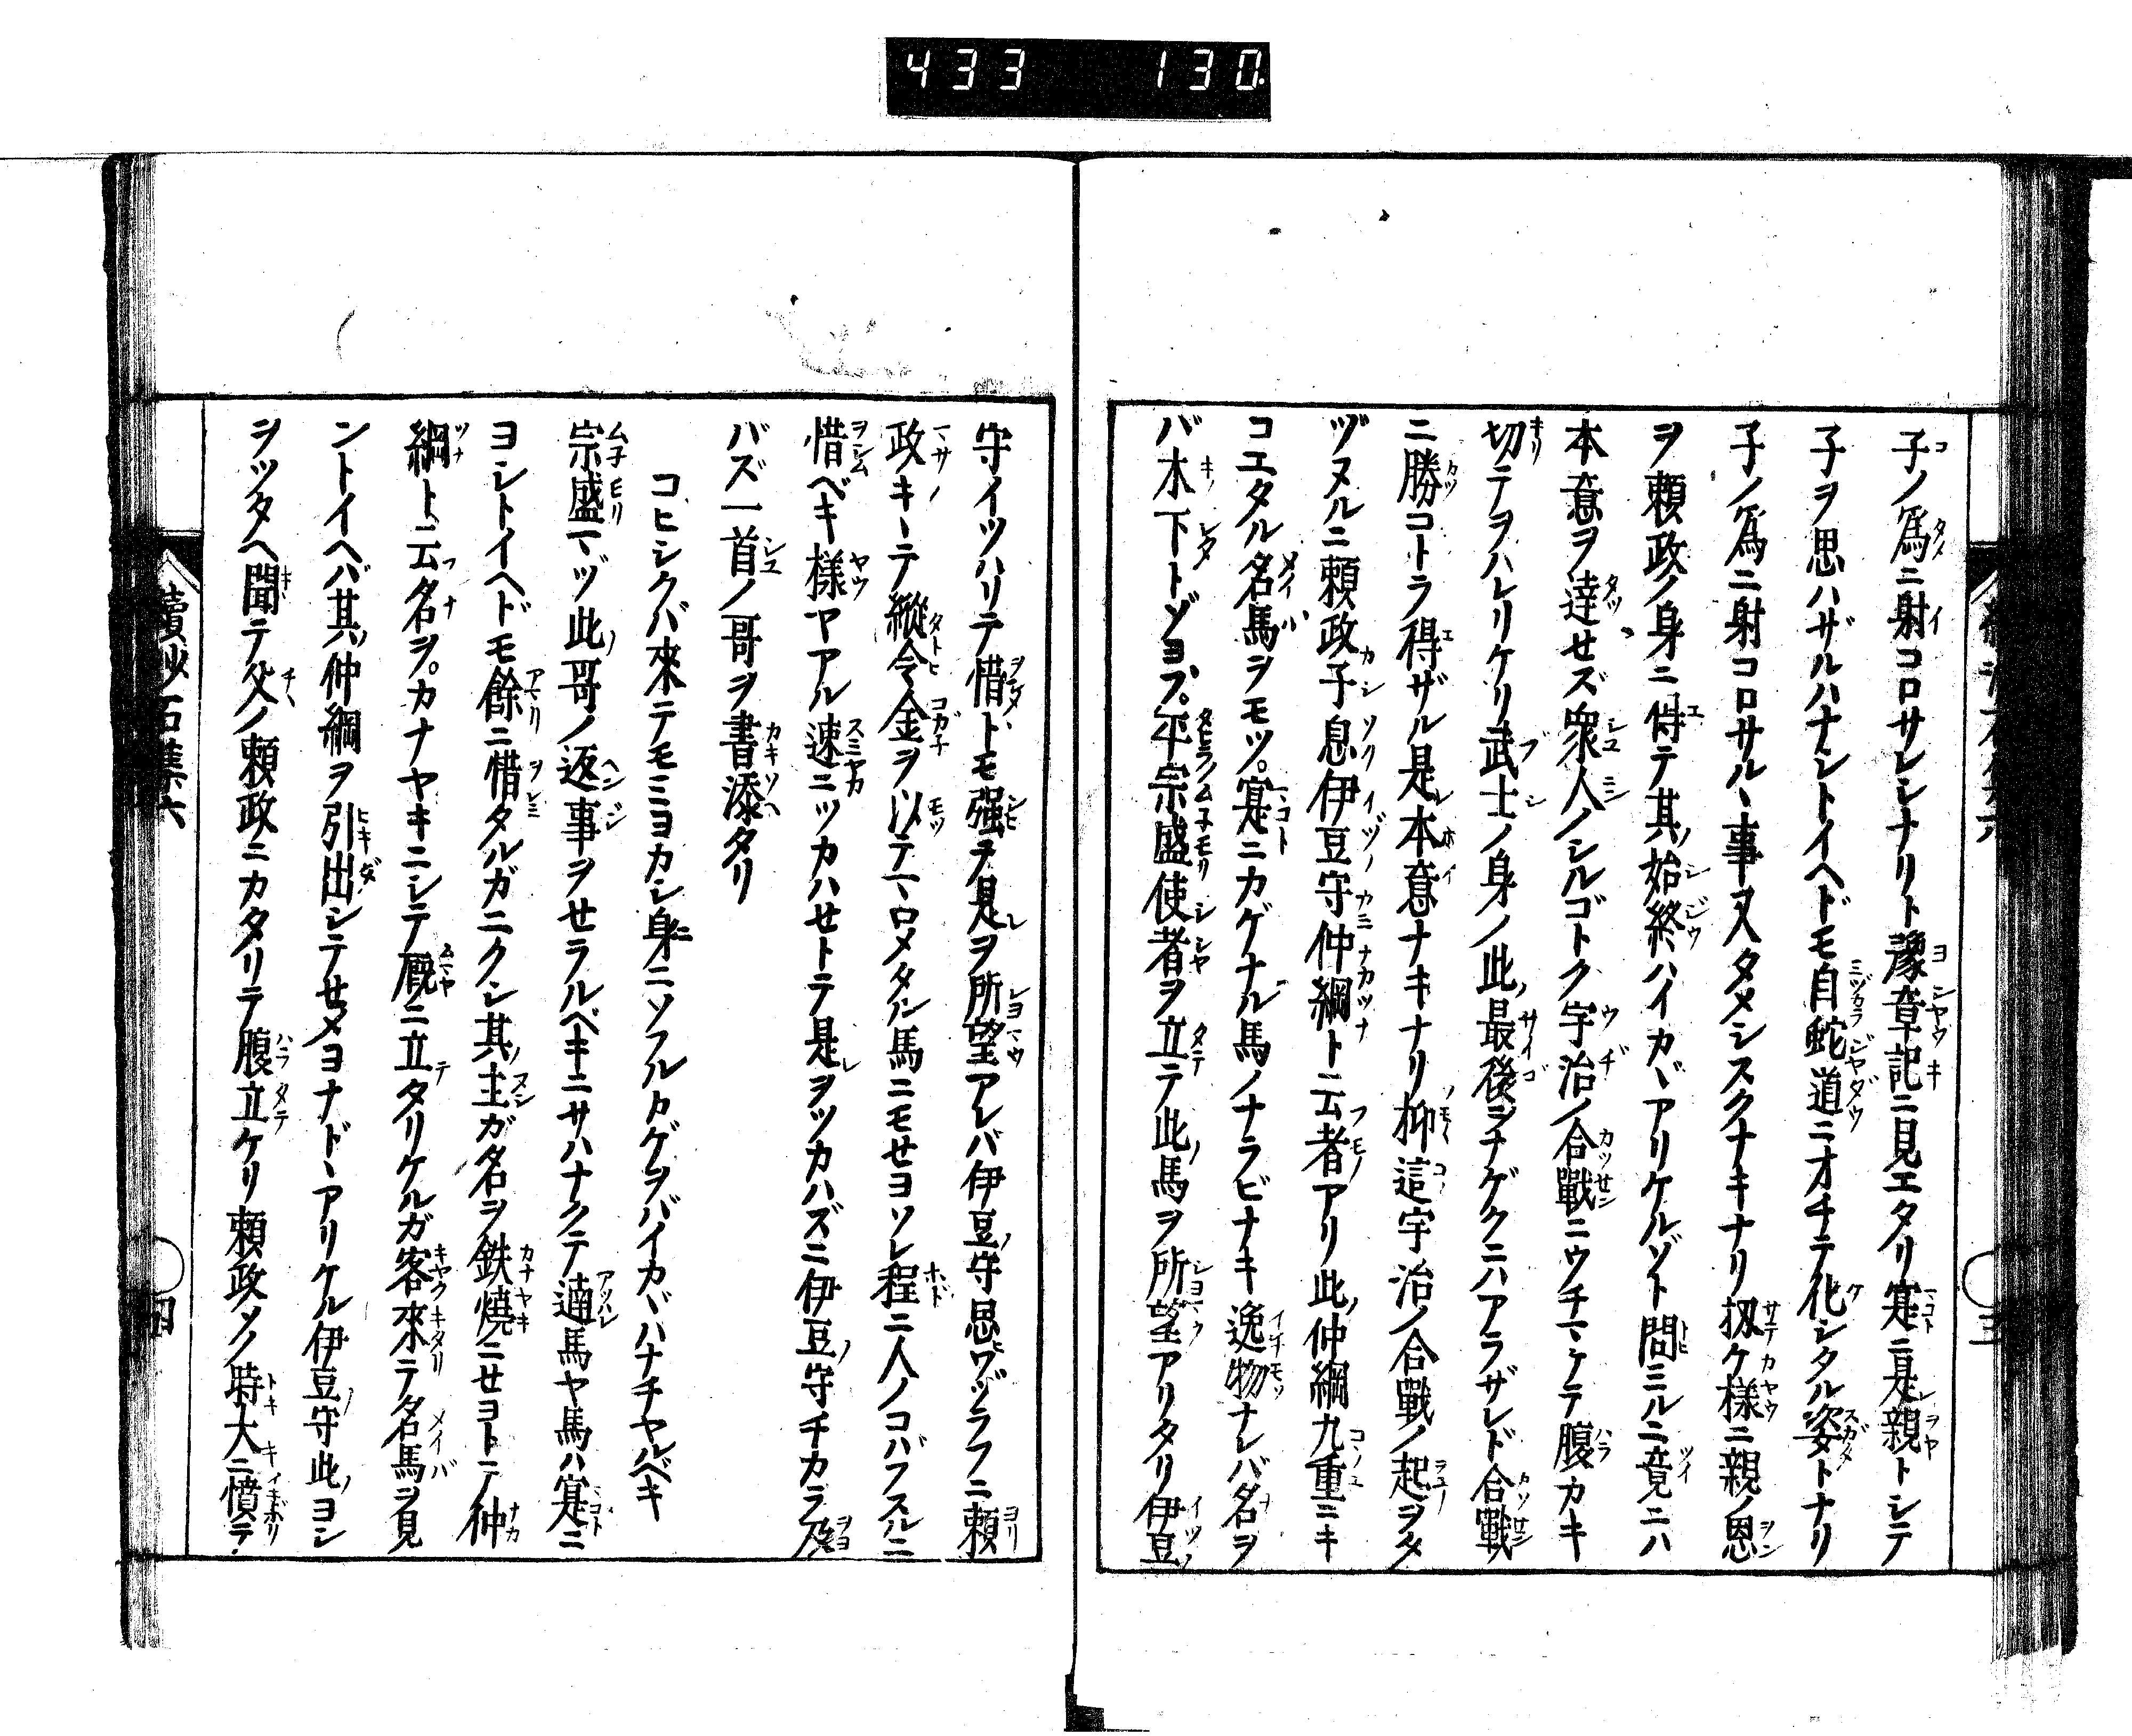 433 130
子ノ爲ニ射コロサレシナリト豫章記ニ見エタリ寔ニ是親トシテ
子ヲ思ハザルハナシトイヘドモ自蛇道ニオチテ化シタル姿トナリ
子ノ爲ニ射コロサルヽ事又タメシスクナキナリ扨ケ樣ニ親ノ恩
ヲ頼政ノ身ニ俻テ其始終ハイカヾアリケルゾト問ミルニ竟ニハ
本意ヲ達せズ衆人ノシルゴトク宇治ノ合戰ニウチマケテ腹カキ
切テヲハレリケリ武士ノ身ノ此最後ヲナゲクニハアラザレド合戰
ニ勝コトラ得ザル是本意ナキナリ抑這宇治ノ合戰ノ起ヲタ
ヅヌルニ頼政子息伊豆守仲綱ト云者アリ此仲綱九重ニキ
コエタル名馬ヲモツ。寔ニカゲナル馬ノナラビナキ逸物ナレバ名ヲ
バ木下トゾヨブ。平宗盛使者ヲ立テ此馬ヲ所望アリタリ伊豆
守イツハリテ惜トモ强テ是ヲ所望アレバ伊豆守思ワヅラフニ頼
政キヽテ縱令金ヲ以テマロメタル馬ニモせヨソレ程ニ人ノコバフスルニ
惜ベキ樣ヤアル速ニツカハせトテ是ヲツカハズニ伊豆守チカラ及
バズ一首ノ哥ヲ書添タリ
コヒシクバ來テモミヨカシ身ニソフルカゲヲバイカヾハナチヤルベキ
宗盛マヅ此哥ノ返事ヲせラルベキニサハナクテ遖馬ヤ馬ハ寔ニ
ヨシトイヘドモ餘ニ惜タルガニクシ其主ガ名ヲ鉄燒ニせヨトテ仲
綱ト云名ヲ。カナヤキニシテ厩ニ立タリケルガ客來テ名馬ヲ見
ントイヘバ其仲綱ヲ引出シテせメヨナドヽアリケル伊豆守此ヨシ
ヲツタヘ聞テ父ノ頼政ニカタリテ腹立ケリ頼政ソノ時大ニ憤テ
續沙石集六
四